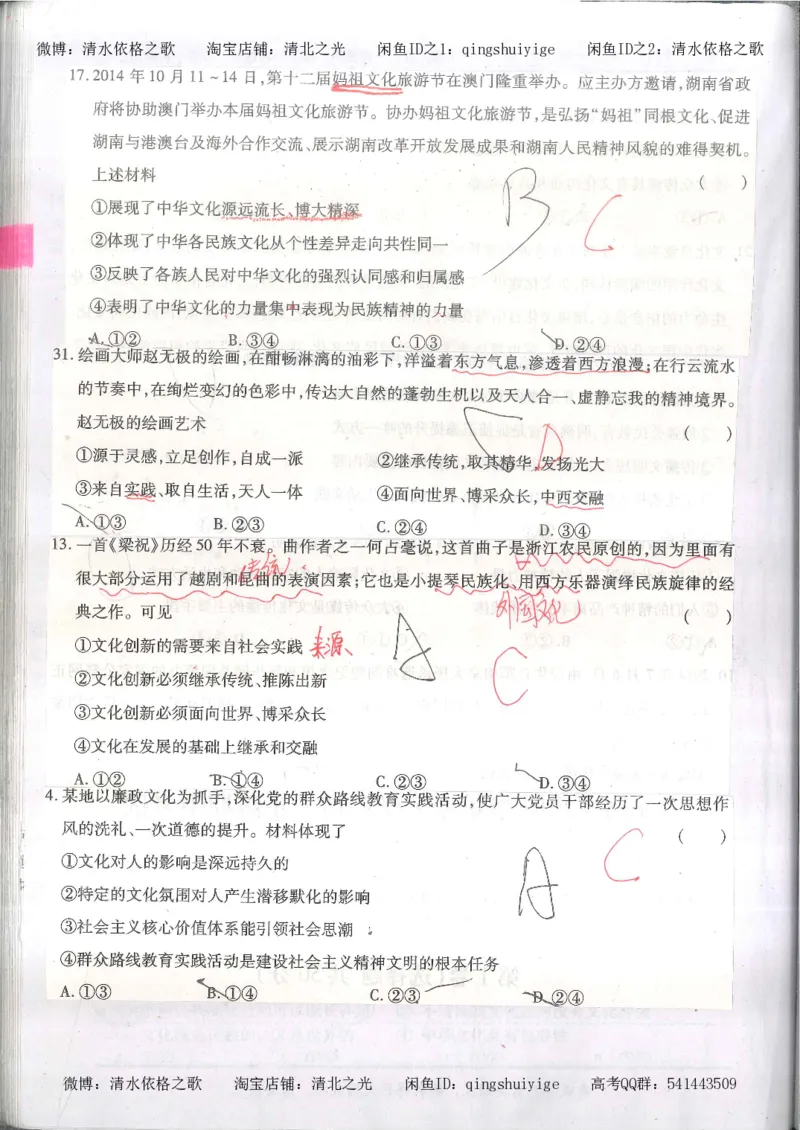 微博：清水依格之歌 淘宝店铺：清北之光 闲鱼ID之1：qingshuiyige 闲鱼ID之2：清水依格之歌
17.2014年10月11~14日,第十二届妈祖文化旅游节在澳门隆重举办。应主办方邀请,湖南省政
府将协助澳门举办本届妈祖文化旅游节。协办妈祖文化旅游节,是弘扬“妈祖”同根文化、促进
湖南与港澳台及海外合作交流、展示湖南改革开放发展成果和湖南人民精神风貌的难得契机。
上述材料 ( )
①展现了中华文化源远流长、博大精深
B C
②体现了中华各民族文化从个性差异走向共性同一
③反映了各族人民对中华文化的强烈认同感和归属感
④表明了中华文化的力量集中表现为民族精神的力量
A.①② B.③④ C.①③ D.②④
31.绘画大师赵无极的绘画,在酣畅淋漓的油彩下,洋溢着东方气息,渗透着西方浪漫;在行云流水
的节奏中,在绚烂变幻的色彩中,传达大自然的蓬勃生机以及天人合一、虚静忘我的精神境界。
赵无极的绘画艺术 ( )
①源于灵感,立足创作,自成一派 ②继承传统,取其精华,发扬光大
D
③来自实践、取自生活,天人一体 ④面向世界、博采众长,中西交融
A.①③ B.②③ C.②④ D.③④
13.一首《梁祝》历经50年不衰。曲作者之一何占毫说,这首曲子是浙江农民原创的,因为里面有
很大部分运用了越剧和昆曲的表演因素;它也是小提琴民族化、用西方乐器演绎民族旋律的经
外国文化
典之作。可见 ( )
①文化创新的需要来自社会实践 来源
A C
②文化创新必须继承传统、推陈出新
③文化创新必须面向世界、博采众长
④文化在发展的基础上继承和交融
A.①② B.①④ C.②③ D.③④
4.某地以廉政文化为抓手,深化党的群众路线教育实践活动,使广大党员干部经历了一次思想作
风的洗礼、一次道德的提升。材料体现了 ( )
①文化对人的影响是深远持久的
A C
②特定的文化氛围对人产生潜移默化的影响
③社会主义核心价值体系能引领社会思潮
④群众路线教育实践活动是建设社会主义精神文明的根本任务
A.①③ B.①④ C.②③ D.②④
微博：清水依格之歌 淘宝店铺：清北之光 闲鱼ID：qingshuiyige 高考QQ群：541443509